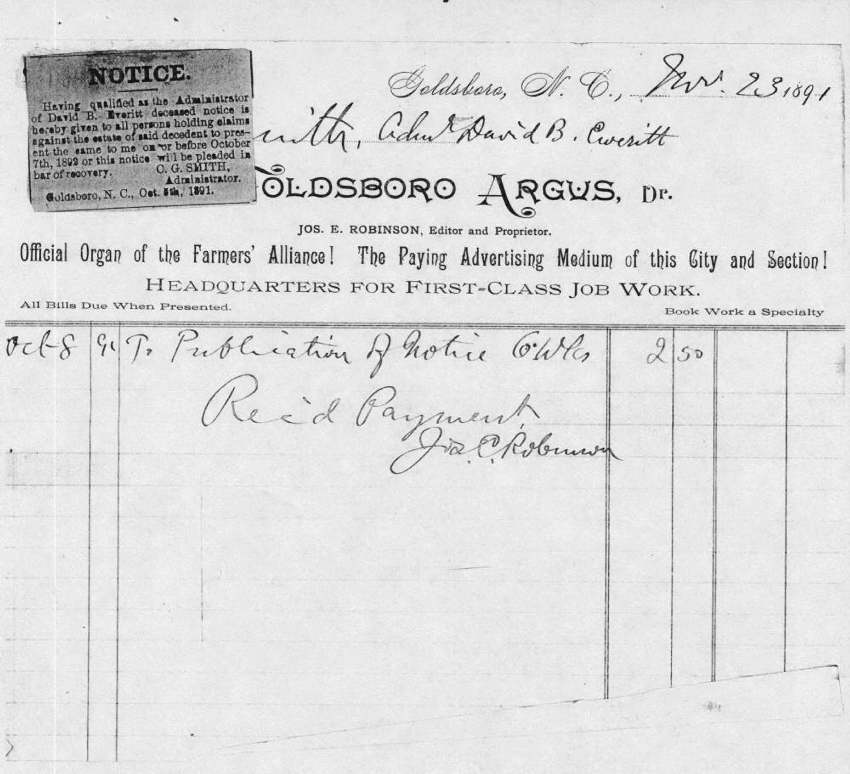 NOTICE.
Having qualified as the Administrator
of David B. Everitt deceased notice is
hereby given to all persons holding claims
against the estate of said decedent to pres-
ent the same to me on or before October
7th, 1892 or this notice will be pleaded in
bar of recovery. O. G. SMITH,
Administrator.
Goldsboro, N. C., Oct. 5th, 1891.
Goldsboro, N. C., Nov. 23 1891
mith, Admr David B. Everitt
OLDSBORO ARGUS, Dr.
JOS. E. ROBINSON, Editor and Proprietor.
Official Organ of the Farmers' Alliance! The Paying Advertising Medium of this City and Section!
HEADQUARTERS FOR FIRST-CLASS JOB WORK.
All Bills Due When Presented. Book Work a Specialty
Oct 8 91 To Publication of Notice 6 Wks 2 50
Rec'd Payment
Jos. E. Robinson